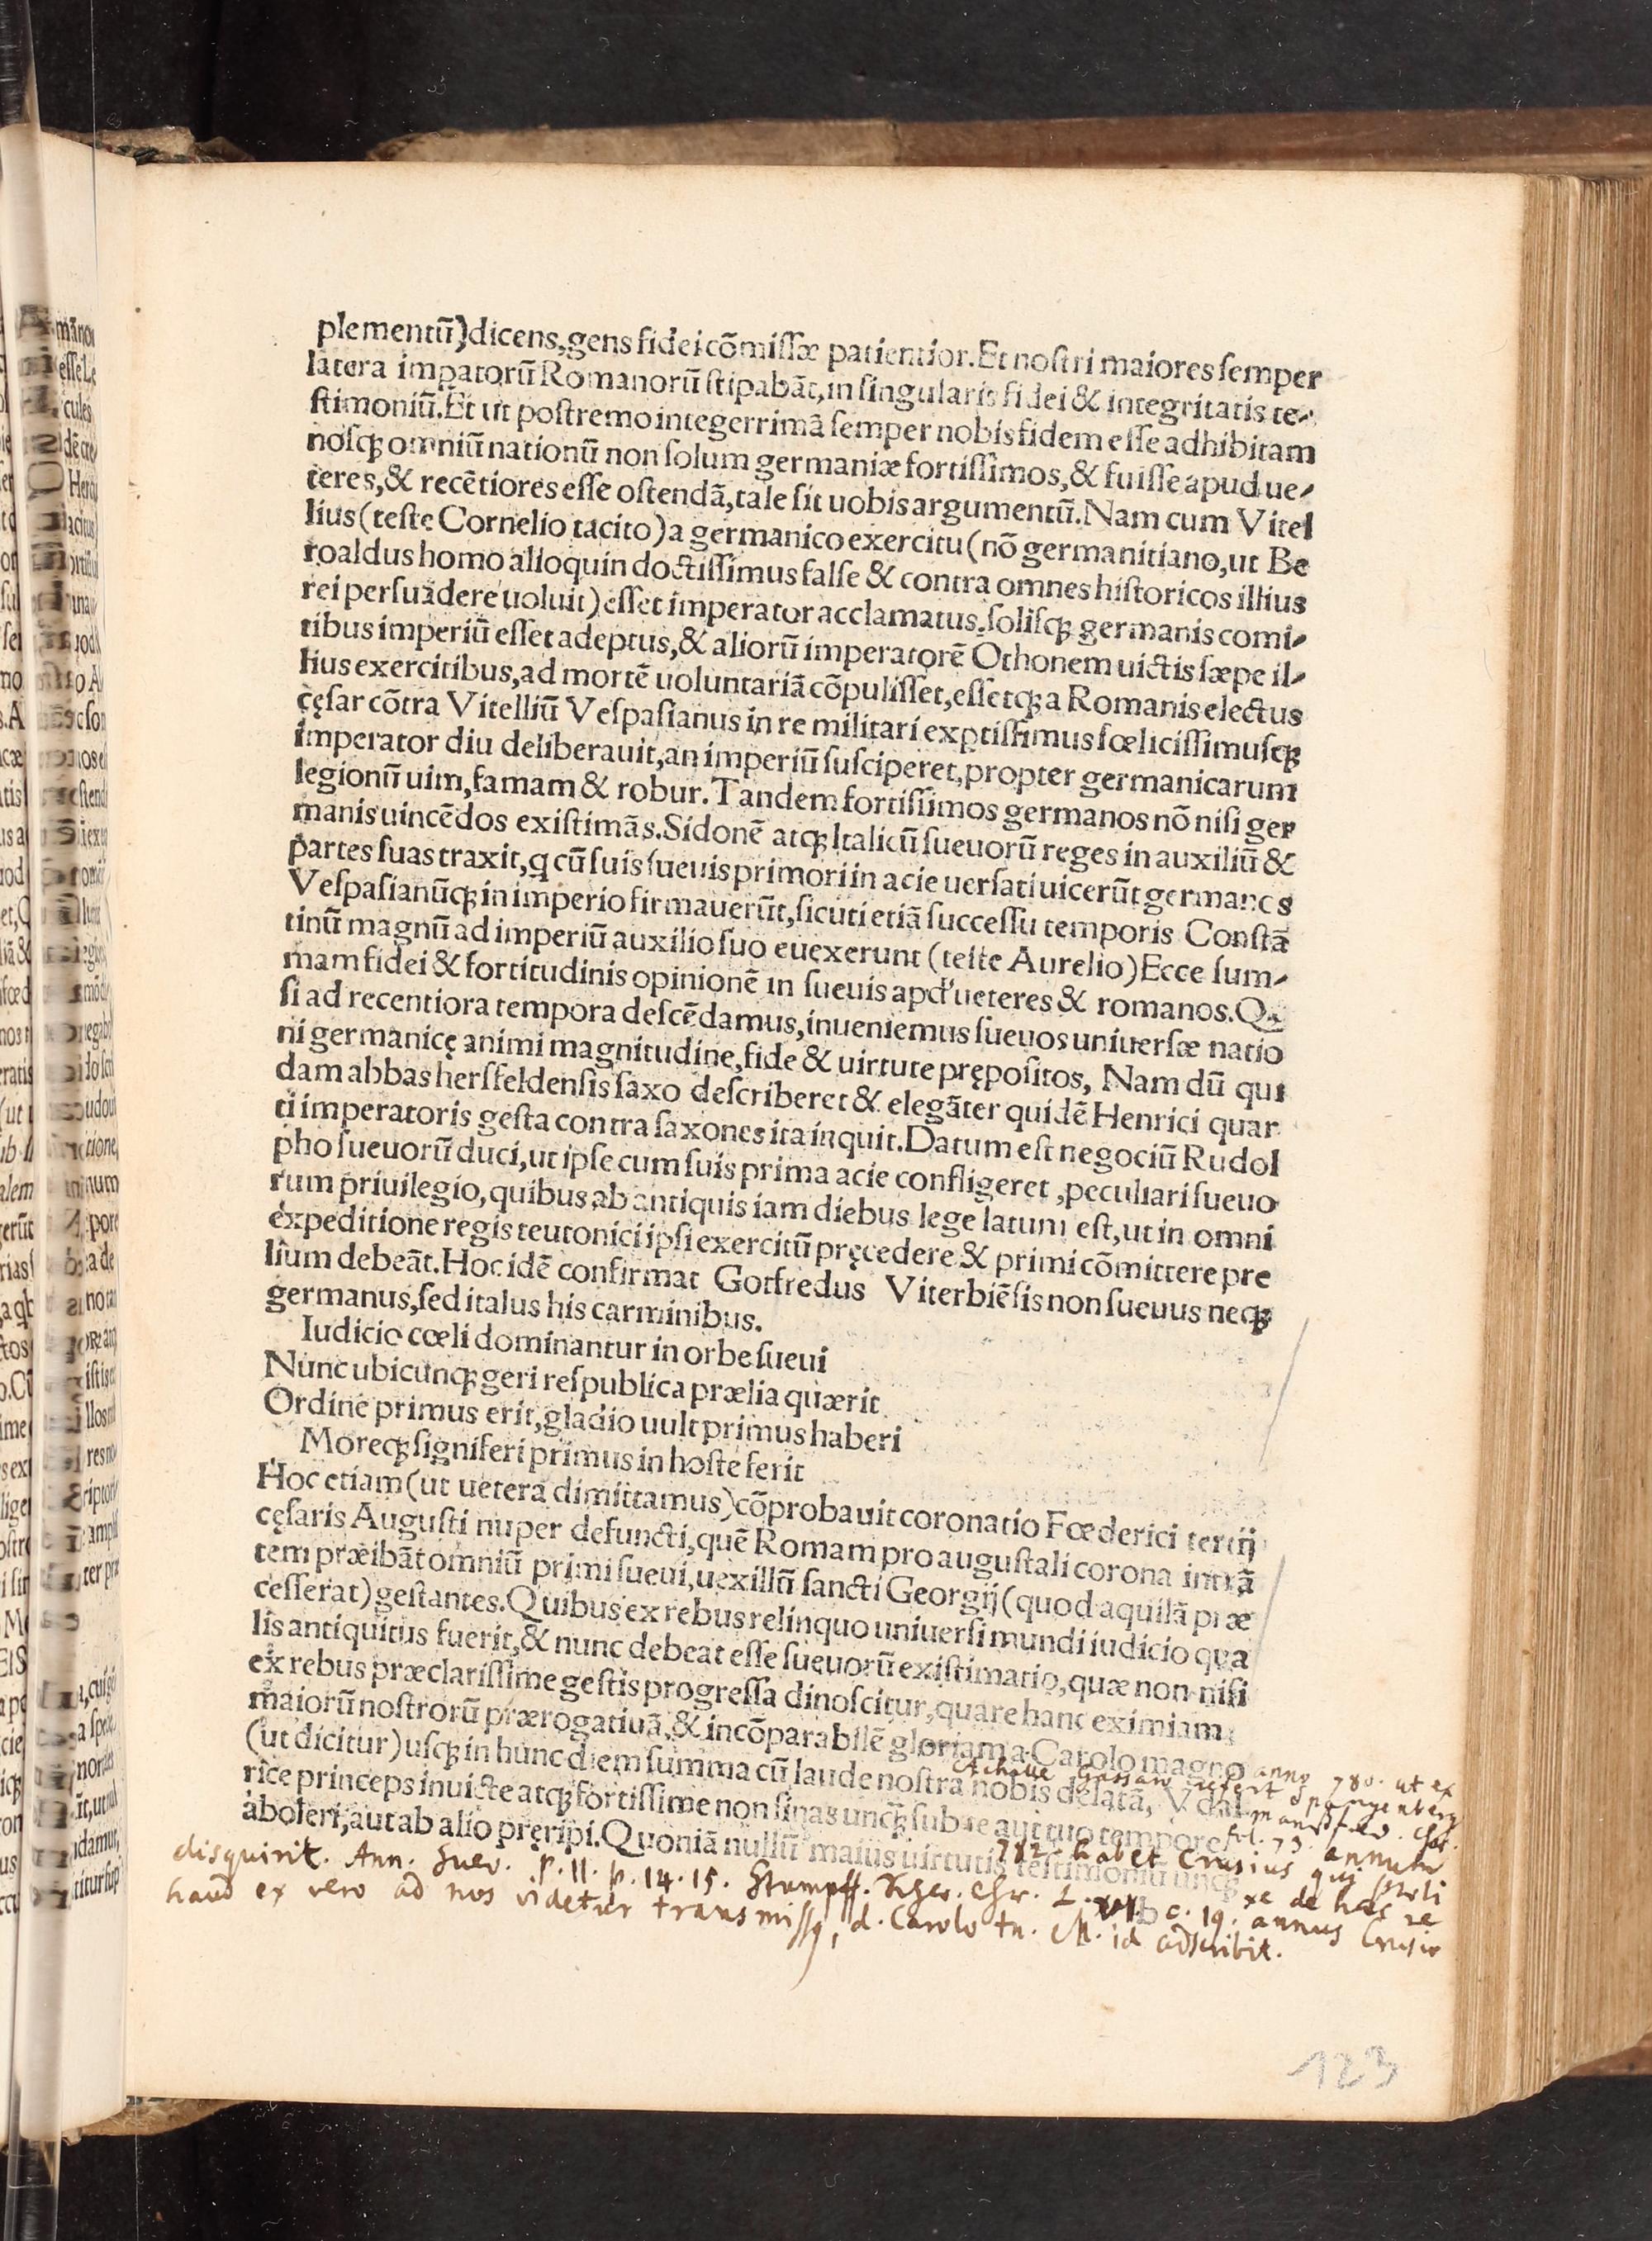 plementū)dicens,gens fidei cōmissæ patientior.Et nostri maiores semper
latera impatorū Romanorū stipabāt,in singularis fidei & integritatis te-
stimoniū.Et ut postremo integerrimā semper nobis fidem esse adhibitam
nosqꝫ omniū nationū non solum germaniæ fortissimos,& fuisse apud ue-
teres,& recētiores esse ostendā,tale sit uobis argumentū.Nam cum Vitel
lius(teste Cornelio tacito)a germanico exercitu(nō germanitiano,ut Be
roaldus homo alioquin doctissimus false & contra omnes historicos illius
rei persuadere uoluit)esset imperator acclamatus.solisqꝫ germanis comi-
tibus imperiū esset adeptus,& aliorū imperatorē Othonem uictis sæpe il-
lius exercitibus,ad mortē uoluntariā cōpulisset,essetqꝫ a Romanis electus
cęsar cōtra Vitelliū Vespasianus in re militari exꝑtissimus fœlicissimusqꝫ
imperator diu deliberauit,an imperiū susciperet,propter germanicarum
legionū uim,famam & robur.Tandem fortissimos germanos nō nisi ger
manis uincēdos existimās.Sidonē atqꝫ Italicū sueuorū reges in auxiliū &
partes suas traxit,q cū suis sueuis primori in acie uersati uicerūt germanos
Vespasianūqꝫ in imperio firmauerūt,sicuti etiā successu temporis Constā
tinū magnū ad imperiū auxilio suo euexerunt (teste Aurelio)Ecce sum-
mam fidei & fortitudinis opinionē in sueuis apd' ueteres & romanos.Qᷓ
si ad recentiora tempora descēdamus,inueniemus sueuos uniuersæ natio
ni germanicę animi magnitudine,fide & uirtute prępositos, Nam dū qui
dam abbas hersfeldensis saxo describeret & elegāter quidē Henrici quar
ti imperatoris gesta contra saxones ita inquit.Datum est negociū Rudol
pho sueuorū duci,ut ipse cum suis prima acie confligeret ,peculiari sueuo
rum priuilegio,quibus ab antiquis iam diebus lege latum est,ut in omni
expeditione regis teutonici ipsi exercitū pręcedere & primi cōmittere pre
lium debeāt.Hoc idē confirmat Gotfredus Viterbiēsis non sueuus neqꝫ
germanus,sed italus his carminibus.
Iudicio cœli dominantur in orbe sueui
Nunc ubicunqꝫ geri respublica prælia quærit
Ordine primus erit,gladio uult primus haberi
Moreqꝫ signiferi primus in hoste ferit
Hoc etiam(ut uetera dimittamus)cōprobauit coronatio Fœderici tertij
cęsaris Augusti nuper defuncti,quē Romam pro augustali corona intrā
tem præibāt omniū primi sueui,uexillū sancti Georgij(quod aquilā præ
cesserat)gestantes.Quibus ex rebus relinquo uniuersi mundi iudicio qua
lis antiquitus fuerit,& nunc debeat esse sueuorū existimatio,quæ non nisi
ex rebus præclarissime gestis progressa dinoscitur,quare hanc eximiam
maiorū nostrorū prærogatiuā,& incōparabilē gloriam a Carolo magno
(ut dicitur)usqꝫ in hunc diem summa cū laude nostra nobis delatā, Vdal
rice princeps inuicte atqꝫ fortissime non sinas unqꝫ sub te aut tuo tempore
aboleri,aut ab alio pręripi.Quoniā nullū maius uirtutis testimoniū unqꝫ
Achille Gassaro refert anno 780. ut ex
Spangenberg
mansfeld. Chr.
fol. 73. annum
782. habet Crusius qui
disquirit. Ann. Suev. p. 11. p. 14. 15. Stumpff. Chr. L. c. 19. de hac re
haud ex vero ad nos videtur transmissa, d. Carolo M. id adscribit. annus Crusio
123